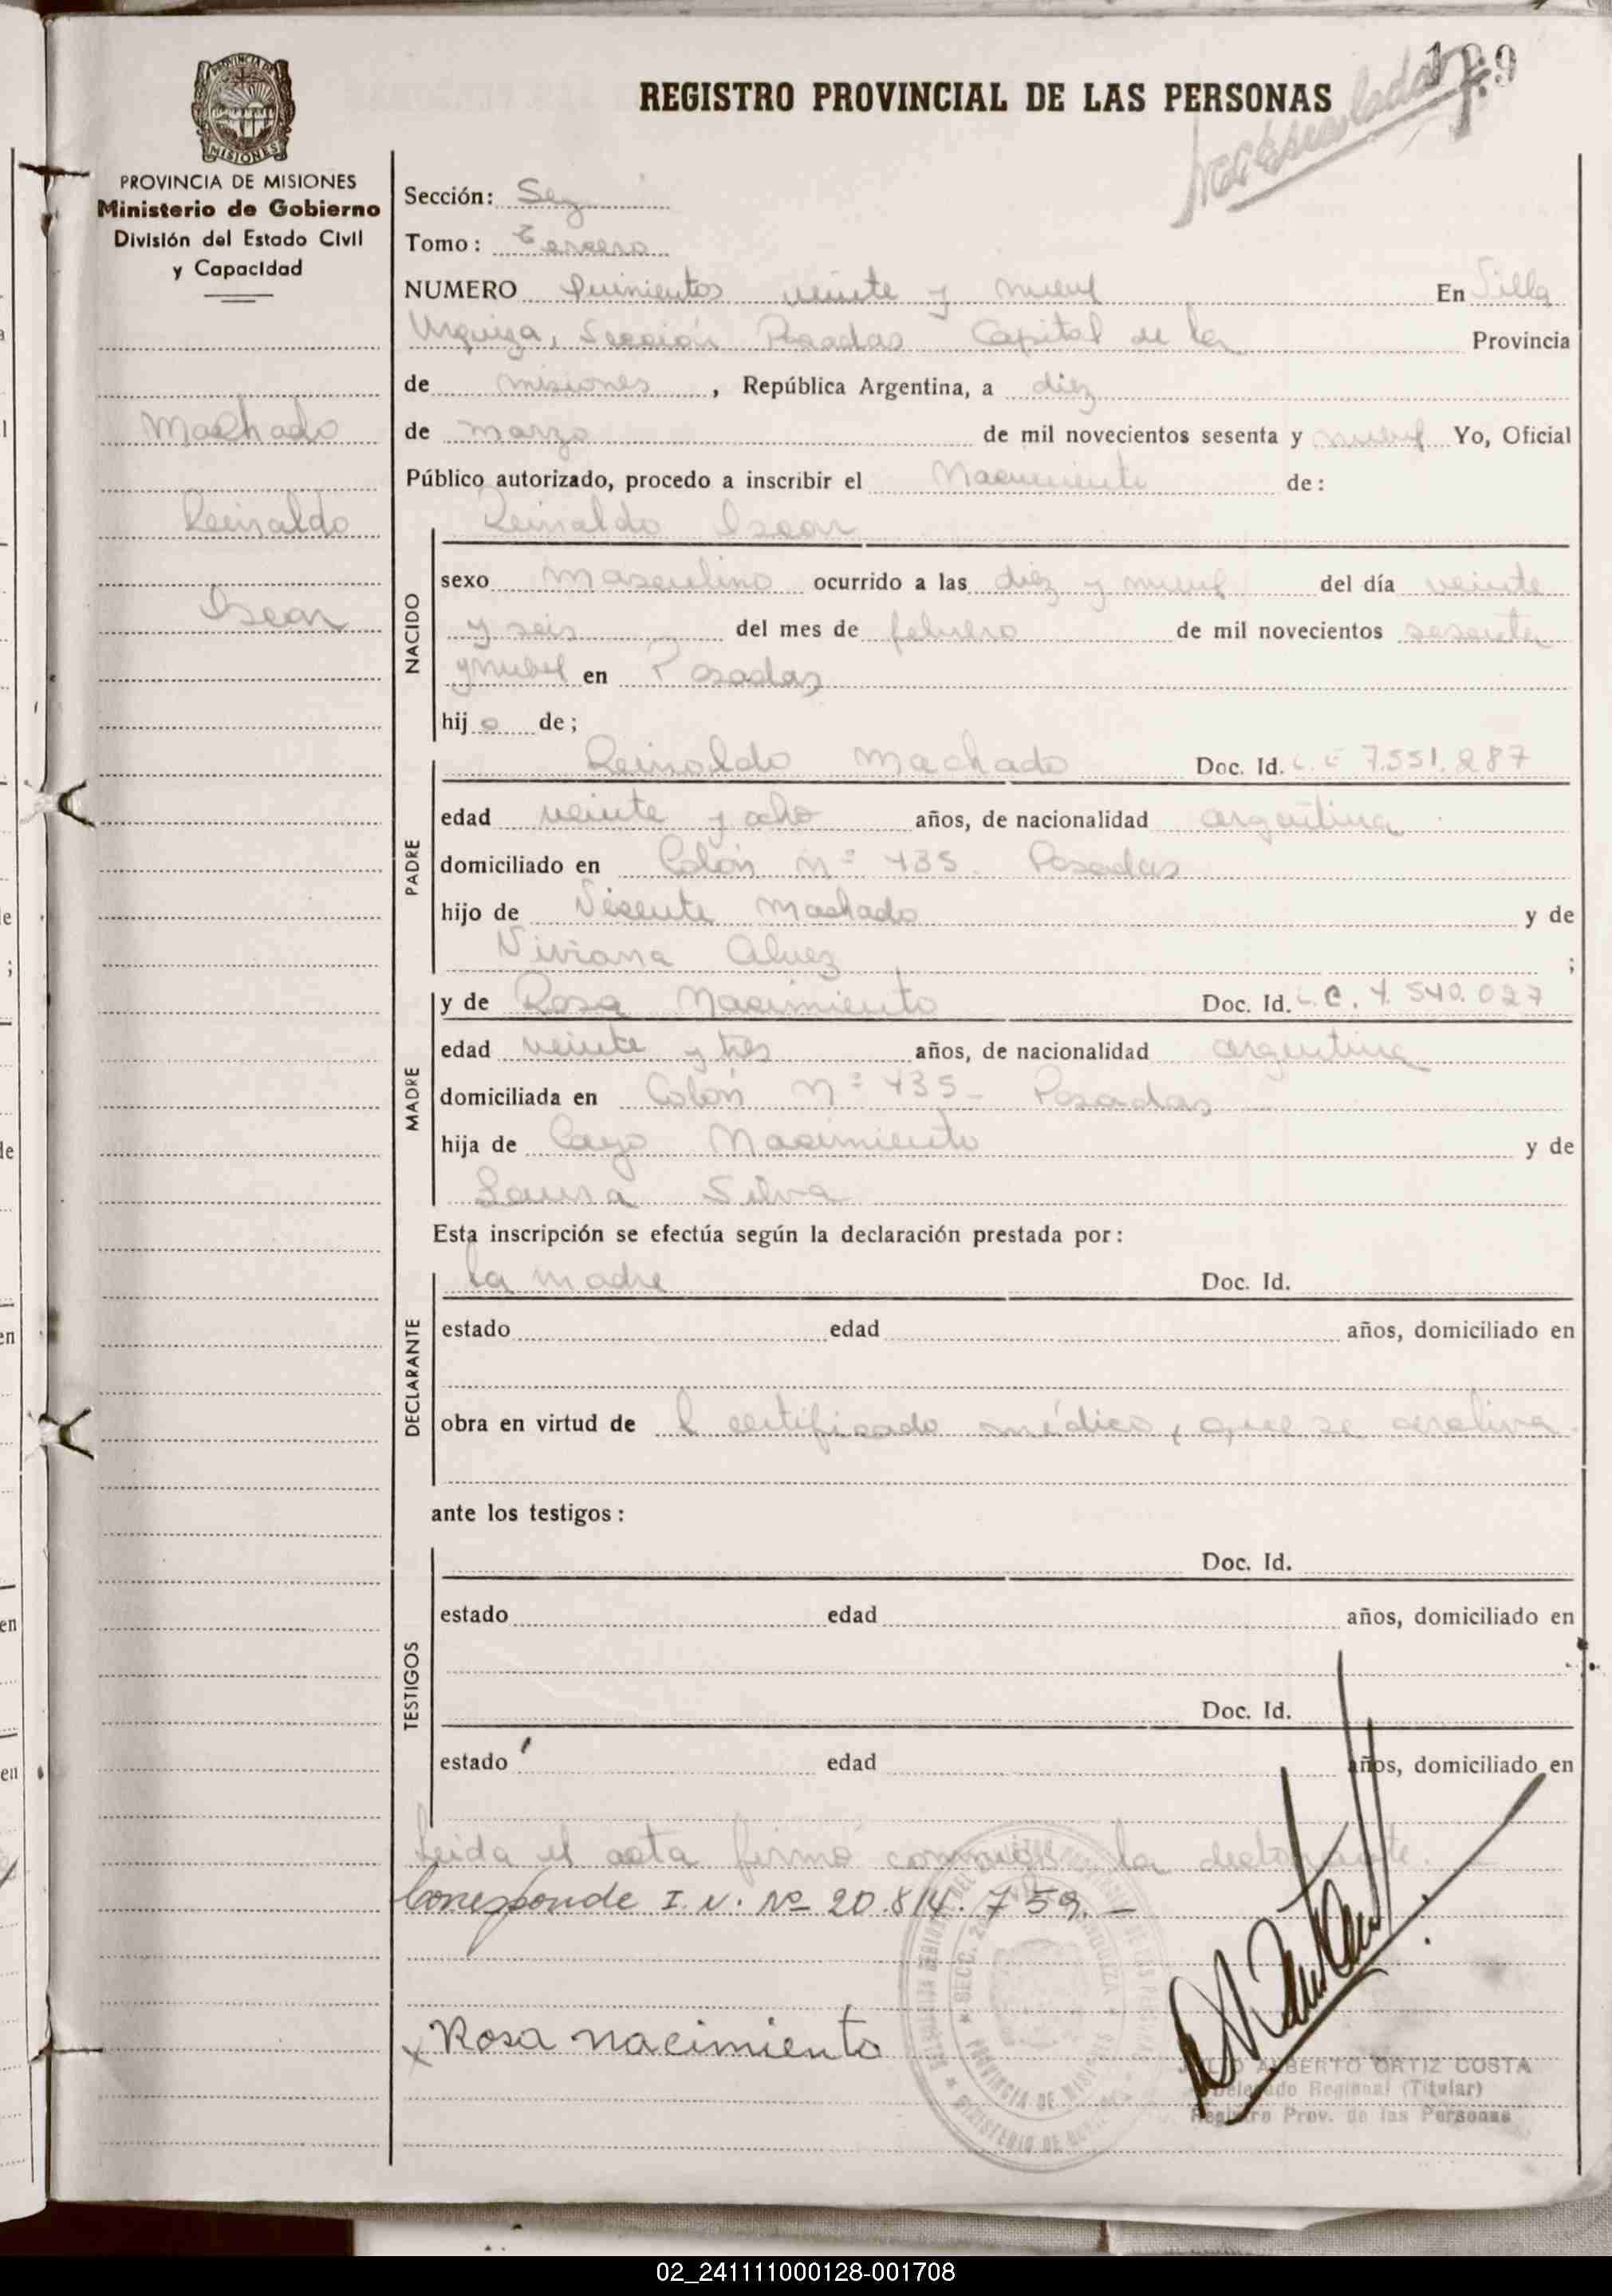 129
REGISTRO PROVINCIAL DE LAS PERSONAS
PROVINCIA DE MISIONES
Ministerio de Gobierno
División del Estado Civil
y Capacidad
Machado
Reinaldo
Oscar
Sección:
Tomo: Tercero
NUMERO Quinientos veinte y nueve En Villa
Urquiza, Sección Posadas Capital de la Provincia
de misiones, República Argentina, a diez
de marzo de mil novecientos sesenta y nueve Yo, Oficial
Público autorizado, procedo a inscribir el Nacimiento de:
Reinaldo Oscar
NACIDO
sexo masculino ocurrido a las diez y nueve del día veinte
y seis del mes de febrero de mil novecientos sesenta
y nueve en Posadas
hijo de;
PADRE
Reinaldo Machado Doc. Id. L.E 7.551.287
edad veinte y ocho años, de nacionalidad argentina
domiciliado en Colón nº 435 Posadas
hijo de Vicente Machado y de
Viviana Alvez ;
MADRE
y de Rosa Nacimiento Doc. Id. L.C. 4.540.027
edad veinte y tres años, de nacionalidad argentina
domiciliada en Colón nº 435 - Posadas
hija de Cayo Nacimiento y de
Laura Silva
Esta inscripción se efectúa según la declaración prestada por:
DECLARANTE
la madre Doc. Id.
estado edad años, domiciliado en
obra en virtud de l certificado médico, que se archiva.
ante los testigos:
TESTIGOS
Doc. Id.
estado edad años, domiciliado en
Doc. Id.
estado edad años, domiciliado en
Leida el acta firmó conmigo la declarante. -
Corresponde I.N. Nº 20.814.759. -
Rosa nacimiento
JULIO ALBERTO ORTIZ COSTA
Delegado Regional (Titular)
Registro Prov. de las Personas
02_241111000128-001708